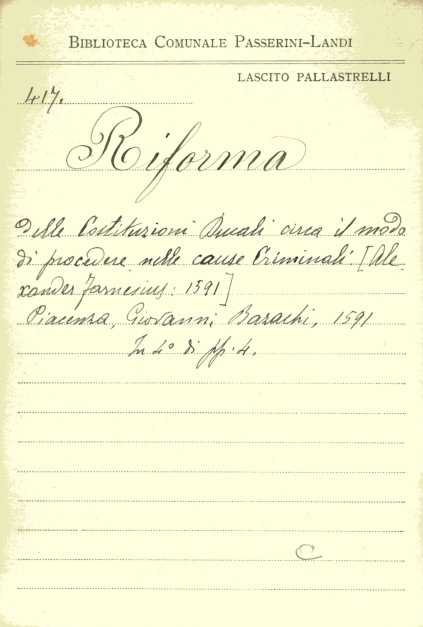 BIBLIOTECA COMUNALE PASSERINI-LANDI
LASCITO PALLASTRELLI
417.
Riforma
delle Costituzioni Ducali circa il modo
di procedere nelle cause Criminali. [Ale-
xander Farnesius: 1591]
Piacenza, Giovanni Bazachi, 1591
In 4° di pp. 4.
C